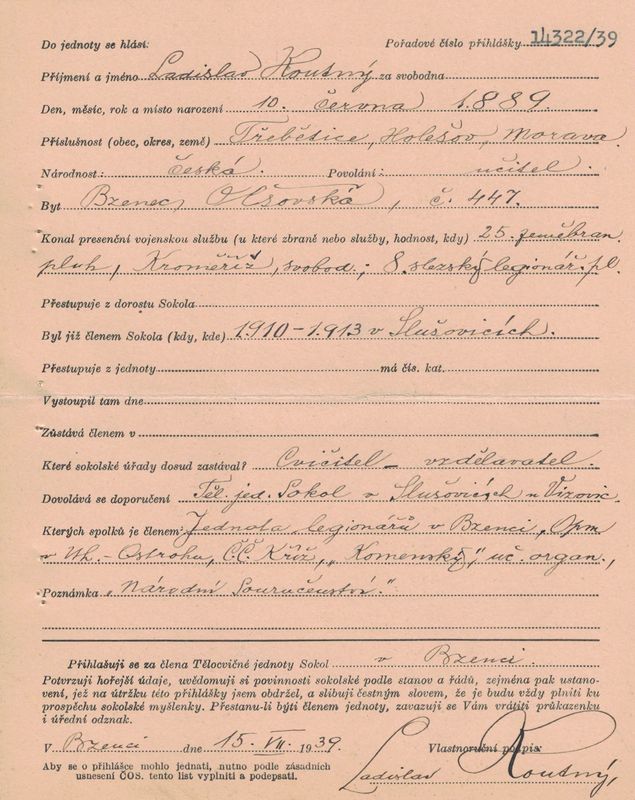 Do jednoty se hlásí: Pořadové číslo přihlášky 14322/39
Příjmení a jméno Ladislav Koutný za svobodna
Den, měsíc, rok a místo narození 10. června 1889
Příslušnost (obec, okres, země) Třebětice, Holešov, Morava
Národnost: česká. Povolání: učitel.
Byt Bzenec, Olšovská, č. 447.
Konal presenční vojenskou službu (u které zbraně nebo služby, hodnost, kdy) 25. zeměbran.
pluh, Kroměříž, svobod.; 8. slezský legionář. pl.
Přestupuje z dorostu Sokola
Byl již členem Sokola (kdy, kde) 1910-1913 v Slušovicích.
Přestupuje z jednoty má čís. kat.
Vystoupil tam dne
Zůstává členem v
Které sokolské úřady dosud zastával? Cvičitel - vzdělavatel.
Dovolává se doporučení Těl. jed. Sokol v Slušovicích u Vizovic.
Kterých spolků je členem: Jednota legionářů v Bzenci, "Opm
v Uh.-Ostrohu, Č.Č. Kříž, "Komenský", uč. organ.,
Poznámka "Národní Souručenství."
Přihlašuji se za člena Tělocvičné jednoty Sokol v Bzenci.
Potvrzuji hořejší údaje, uvědomuji si povinnosti sokolské podle stanov a řádů, zejména pak ustano-
vení, jež na útržku této přihlášky jsem obdržel, a slibuji čestným slovem, že je budu vždy plniti ku
prospěchu sokolské myšlenky. Přestanu-li býti členem jednoty, zavazuji se Vám vrátiti průkazenku
i úřední odznak.
V Bzenci dne 15. VII. 1939. Vlastnoruční podpis:
Aby se o přihlášce mohlo jednati, nutno podle zásadních
usnesení ČOS. tento list vyplniti a podepsati.
Ladislav Koutný,